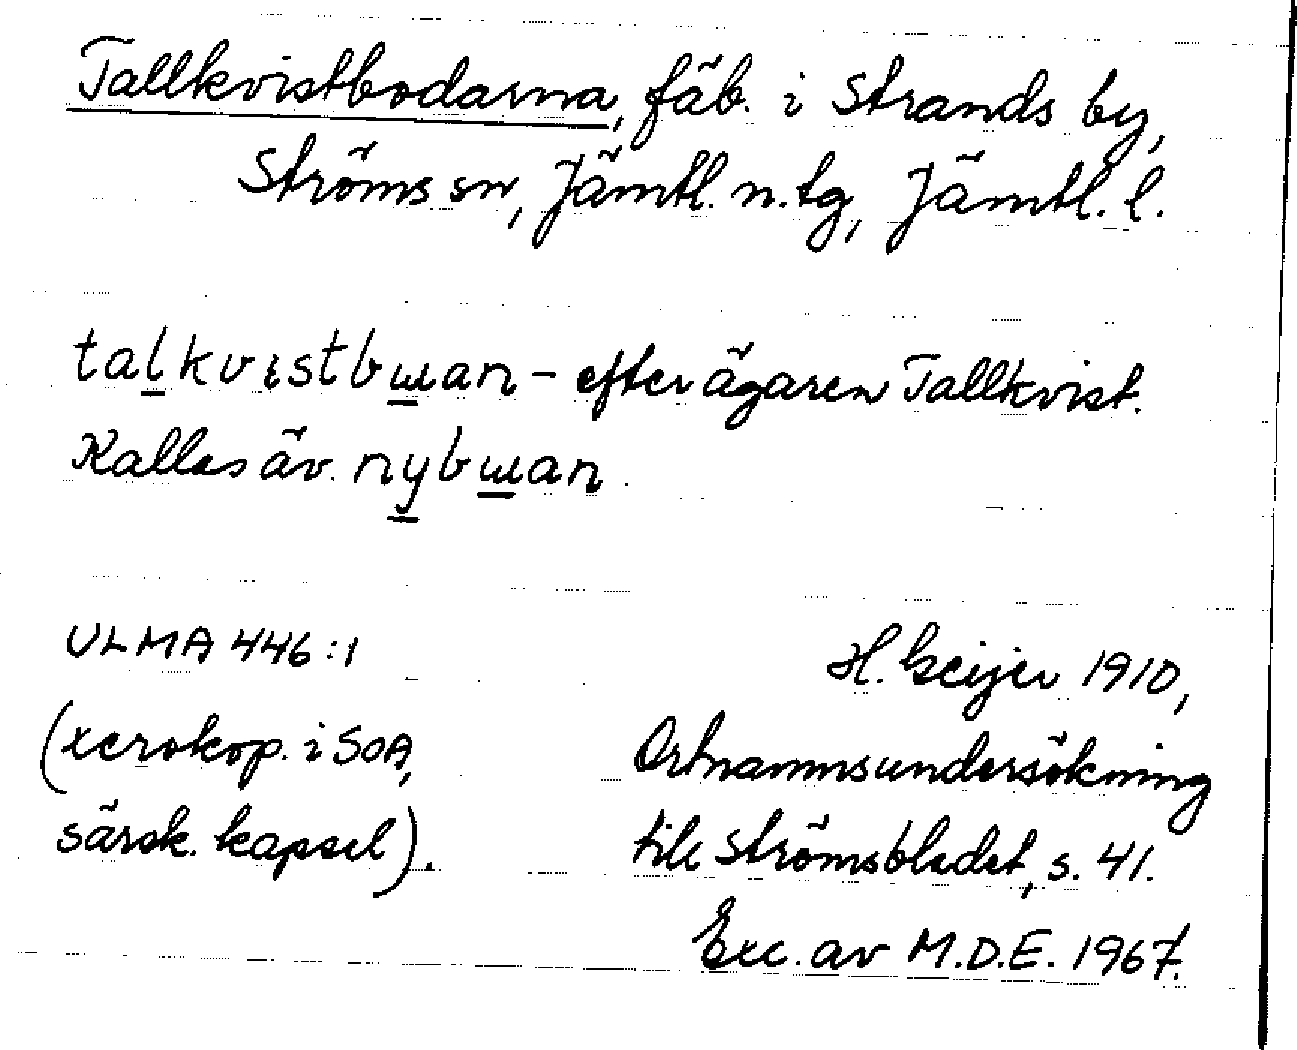 Tallkvistbodarna, fäb. i Strands by,
Ströms sn, Jämtl. n. tg, Jämtl. l.
talkvistbɯan – efter ägaren Tallkvist.
Kallas äv. nybɯan.
ULMA 446:1
(xerokop. i SOA,
särsk. kapsel).
H. Geijer 1910,
Ortnamnsundersökning
till Strömsbladet, s. 41.
Exc. av M.D.E. 1967.